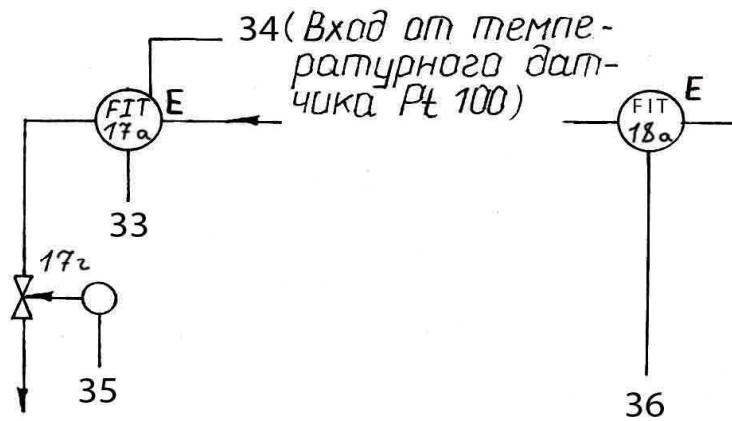 34(Вход от темпе-
ратурного дат-
чика Pt 100)
FIT
17а
E
FIT
18а
E
33
17г
35
36